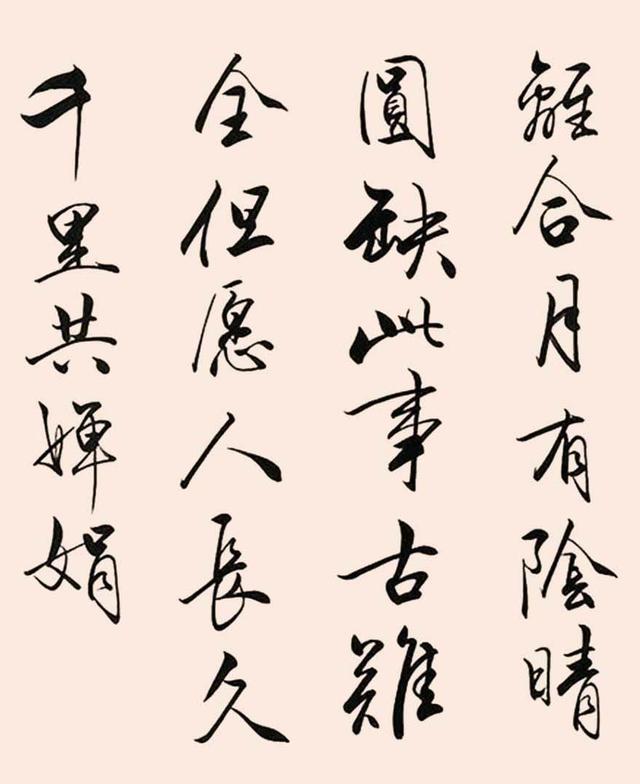 離合月有陰晴
圓缺此事古難
全但愿人長久
千里共嬋娟